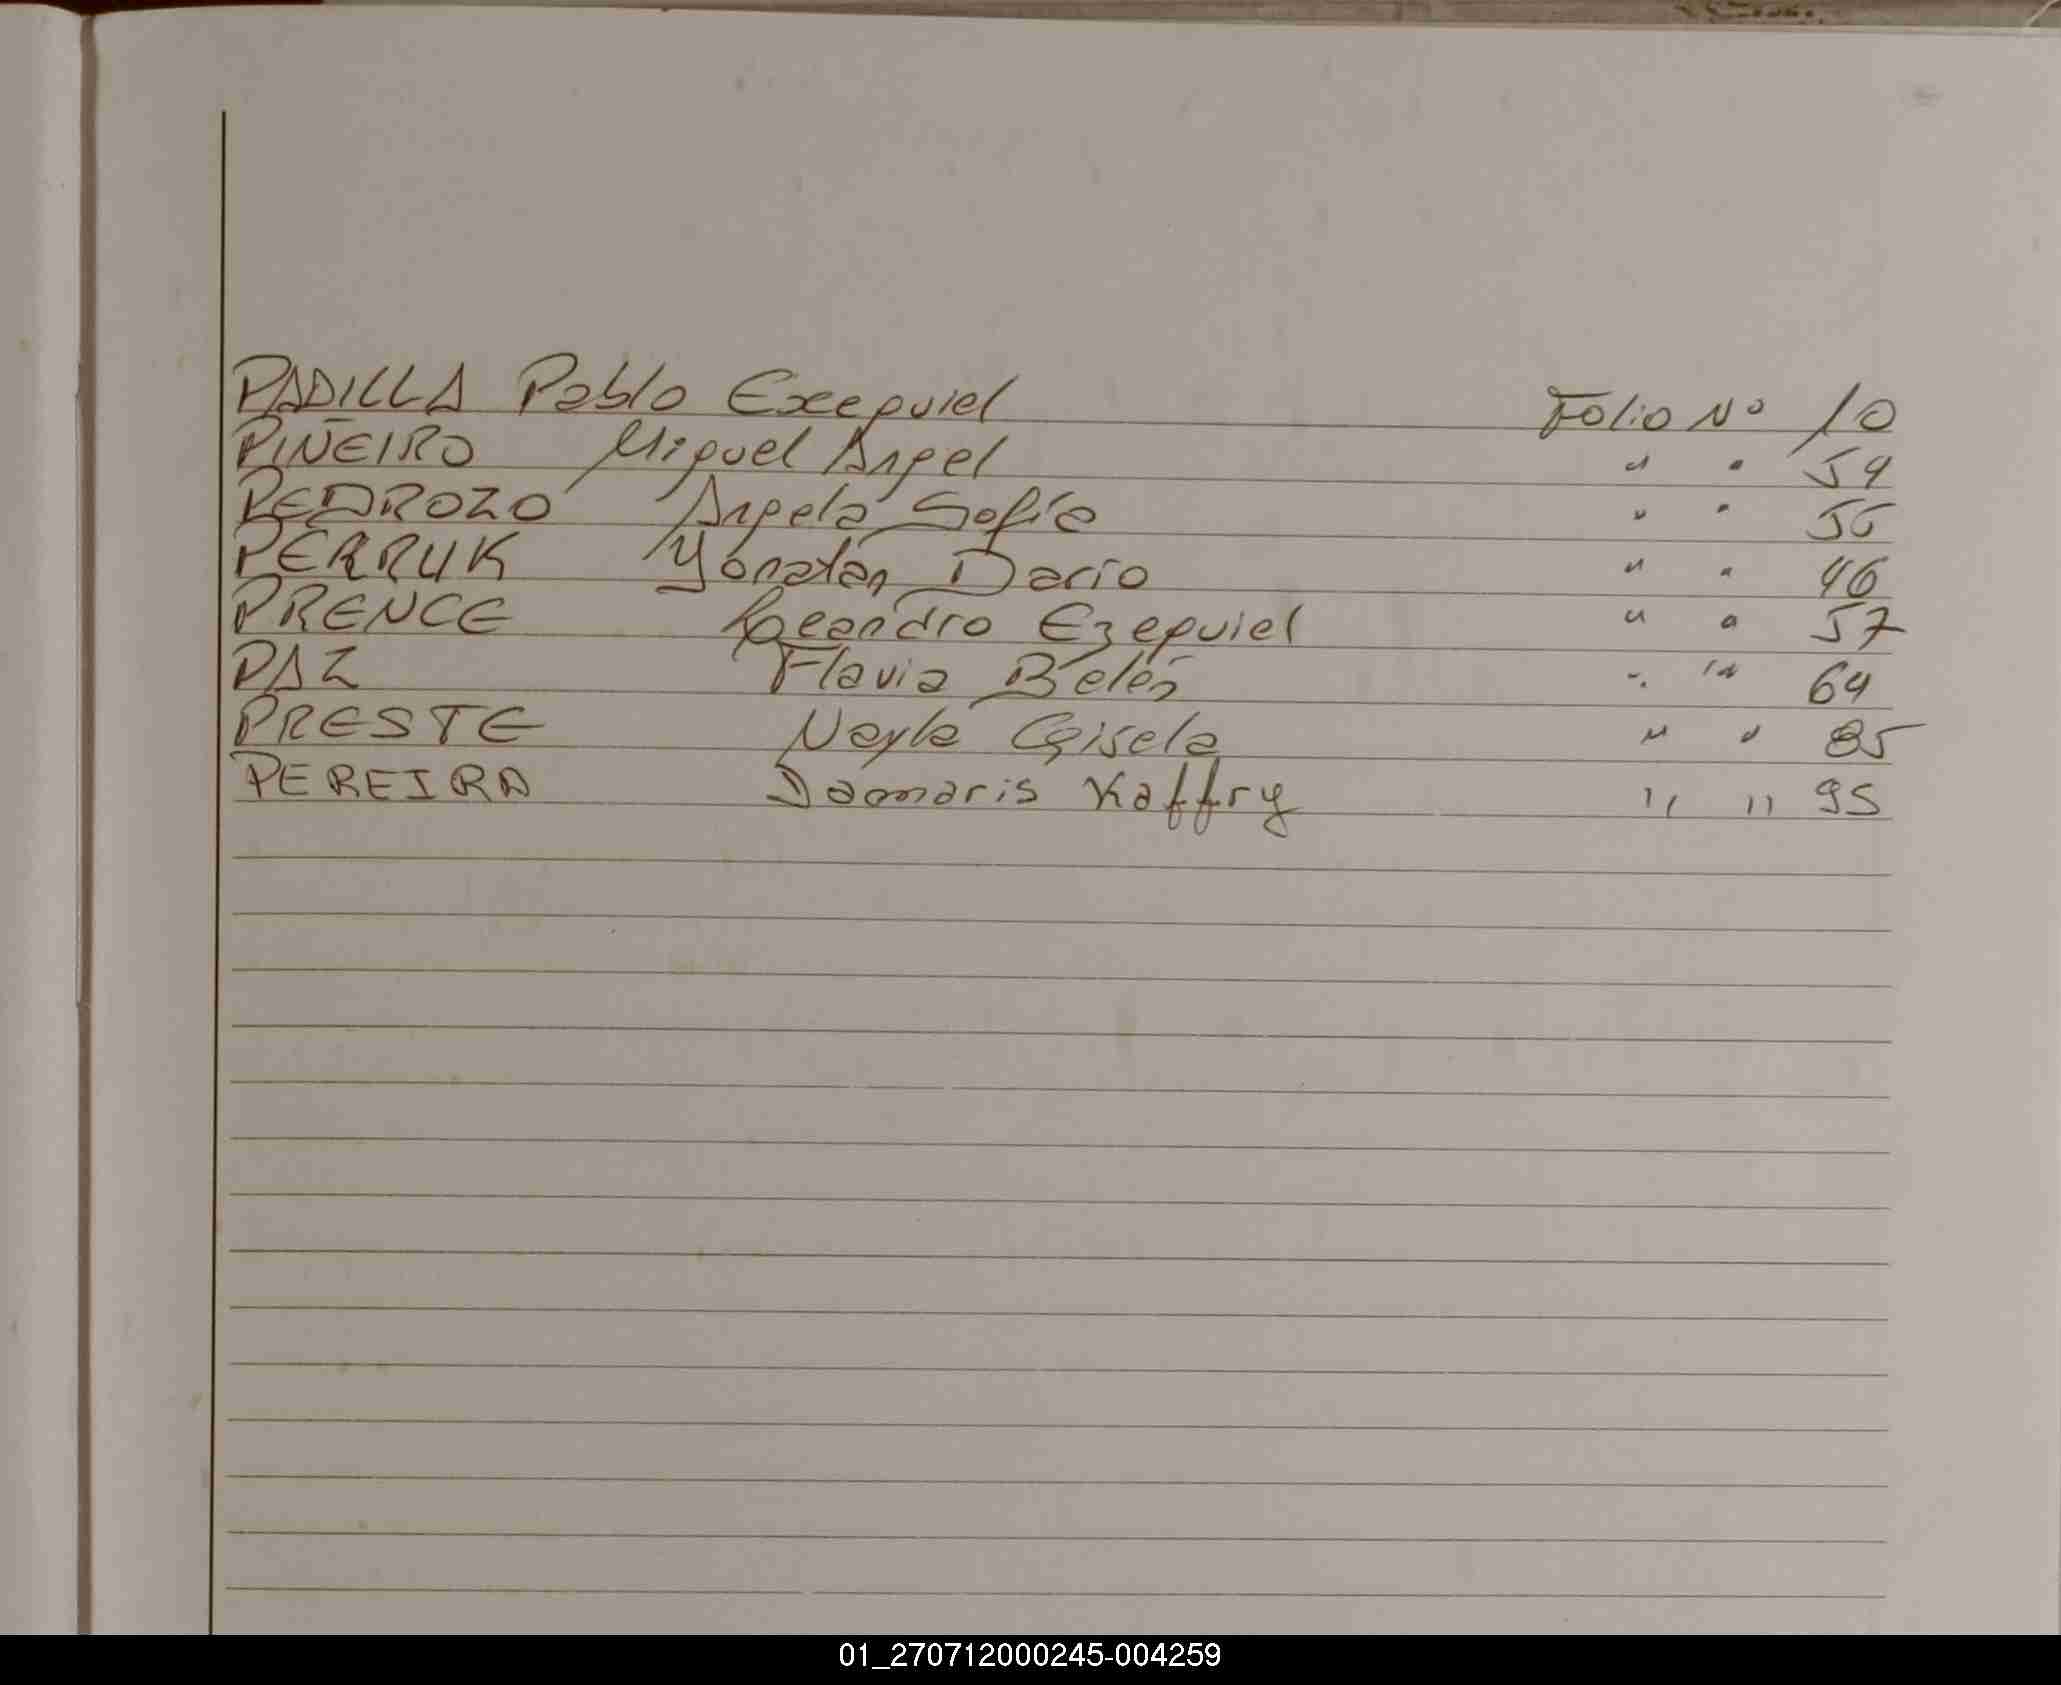 PADILLA Pablo Exequiel Folio Nº 10
PIÑEIRO Miguel Angel " " 54
PEDROZO Angela Sofía " " 56
PERRUK Yonatan Dario " " 46
PRENCE Leandro Ezequiel " " 57
PAZ Flavia Belén " " 64
PRESTE Nayla Gisela " " 85
PEREIRA Damaris Kaffry " " 95
01_270712000245-004259